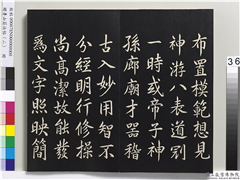 布置模範想見
神游八表道冠
一時或帝子神
孫廊廟才器稽
古入妙用智不
分經明行修操
尚高潔故能發
為文字照映簡
36